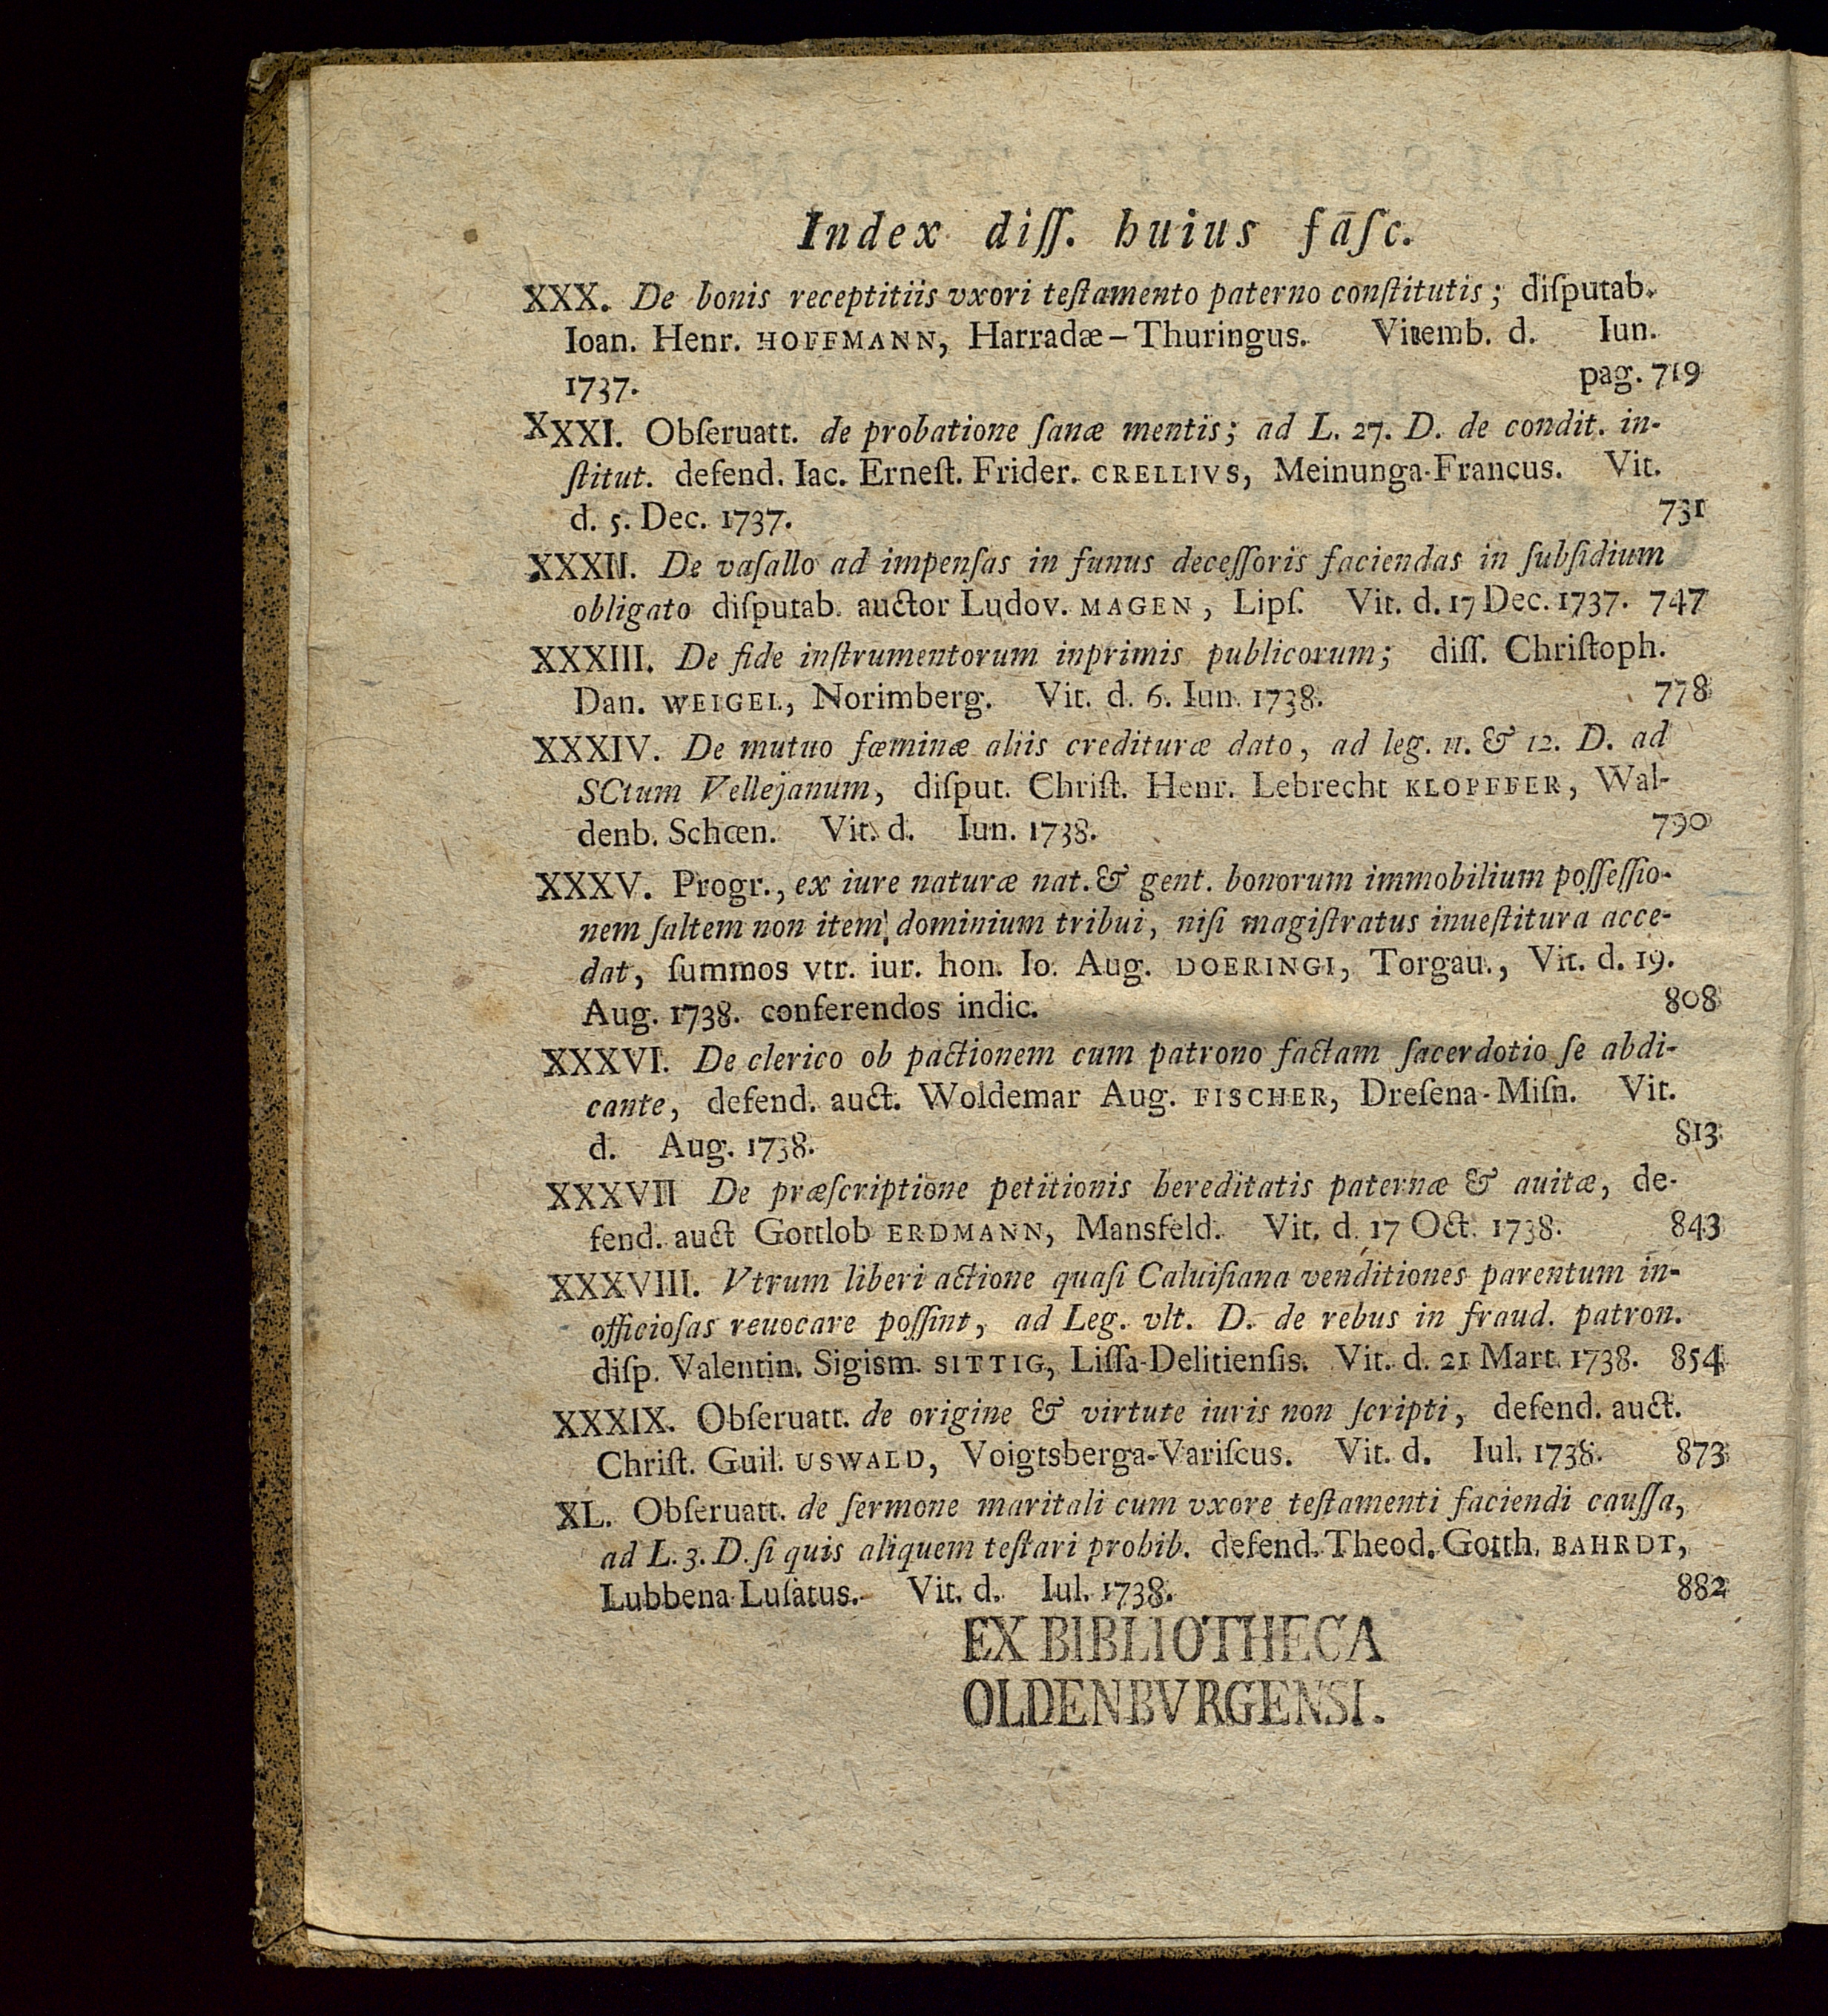 Index diſſ. huius faſc.
XXX. De bonis receptitiis vxori teſtamento paterno conſtitutis; diſputab.
Ioan. Henr. HOFFMANN, Harradæ-Thuringus. Vitemb. d. Iun.
1737. pag. 719
XXXI. Obſeruatt. de probatione ſanæ mentis; ad L. 27. D. de condit. in-
ſtitut. defend. Iac. Erneſt. Frider. CRELLIVS, Meinunga-Francus. Vit.
d. 5. Dec. 1737. 731
XXXII. De vaſallo ad impenſas in funus deceſſoris faciendas in ſubſidium
obligato diſputab. auctor Ludov. MAGEN, Lipſ. Vit. d. 17 Dec. 1737. 747
XXXIII. De fide inſtrumentorum inprimis publicorum; diſſ. Chriſtoph.
Dan. WEIGEL, Norimberg. Vit. d. 6. Iun. 1738. 778
XXXIV. De mutuo fœminæ aliis credituræ dato, ad leg. 11. & 12. D. ad
SCtum Vellejanum, diſput. Chriſt. Henr. Lebrecht KLOPFFER, Wal-
denb. Schœn. Vit. d. Iun. 1738. 790
XXXV. Progr., ex iure naturæ nat. & gent. bonorum immobilium poſſeſſio-
nem ſaltem non item, dominium tribui, niſi magiſtratus inueſtitura acce-
dat, ſummos vtr. iur. hon. Io. Aug. DOERINGI, Torgau., Vit. d. 19.
Aug. 1738. conferendos indic. 808
XXXVI. De clerico ob pactionem cum patrono factam ſacerdotio ſe abdi-
cante, defend. auct. Woldemar Aug. FISCHER, Dreſena-Miſn. Vit.
d. Aug. 1738. 813
XXXVII De præſcriptione petitionis hereditatis paternæ & auitæ, de-
fend. auct Gottlob ERDMANN, Mansfeld. Vit. d. 17 Oct. 1738. 843
XXXVIII. Vtrum liberi actione quaſi Caluiſiana venditiones parentum in-
officioſas reuocare poſſint, ad Leg. vlt. D. de rebus in fraud. patron.
diſp. Valentin. Sigism. SITTIG, Liſſa-Delitienſis. Vit. d. 21 Mart. 1738. 854
XXXIX. Obſeruatt. de origine & virtute iuris non ſcripti, defend. auct.
Chriſt. Guil. USWALD, Voigtsberga-Variſcus. Vit. d. Iul. 1738. 873
XL. Obſeruatt. de ſermone maritali cum vxore teſtamenti faciendi cauſſa,
ad L. 3. D. ſi quis aliquem teſtari prohib. defend. Theod. Gotth. BAHRDT,
Lubbena-Luſatus. Vit. d. Iul. 1738. 882
EX BIBLIOTHECA
OLDENBVRGENSI.